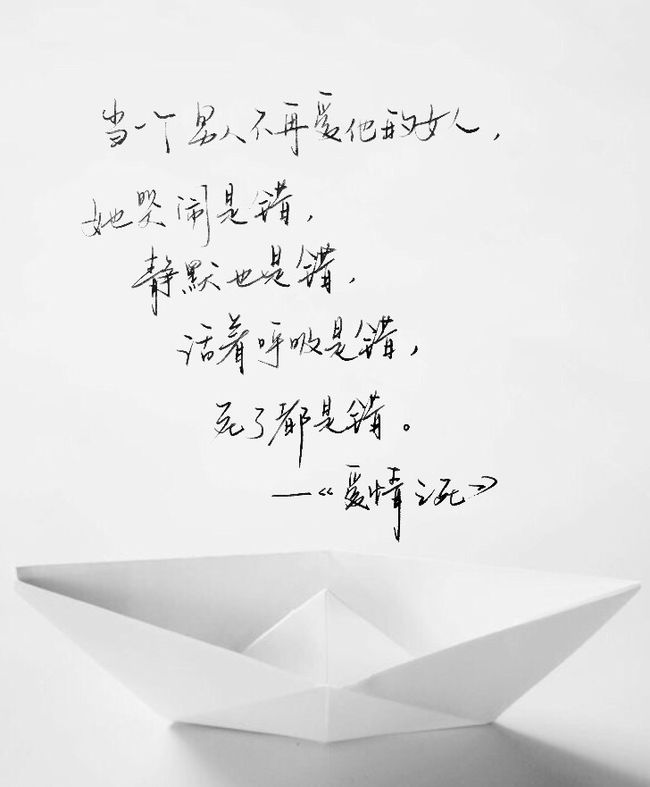 当一个男人不再爱他的女人，
她哭闹是错，
静默也是错，
活着呼吸是错，
死了都是错。
—《爱情之死》